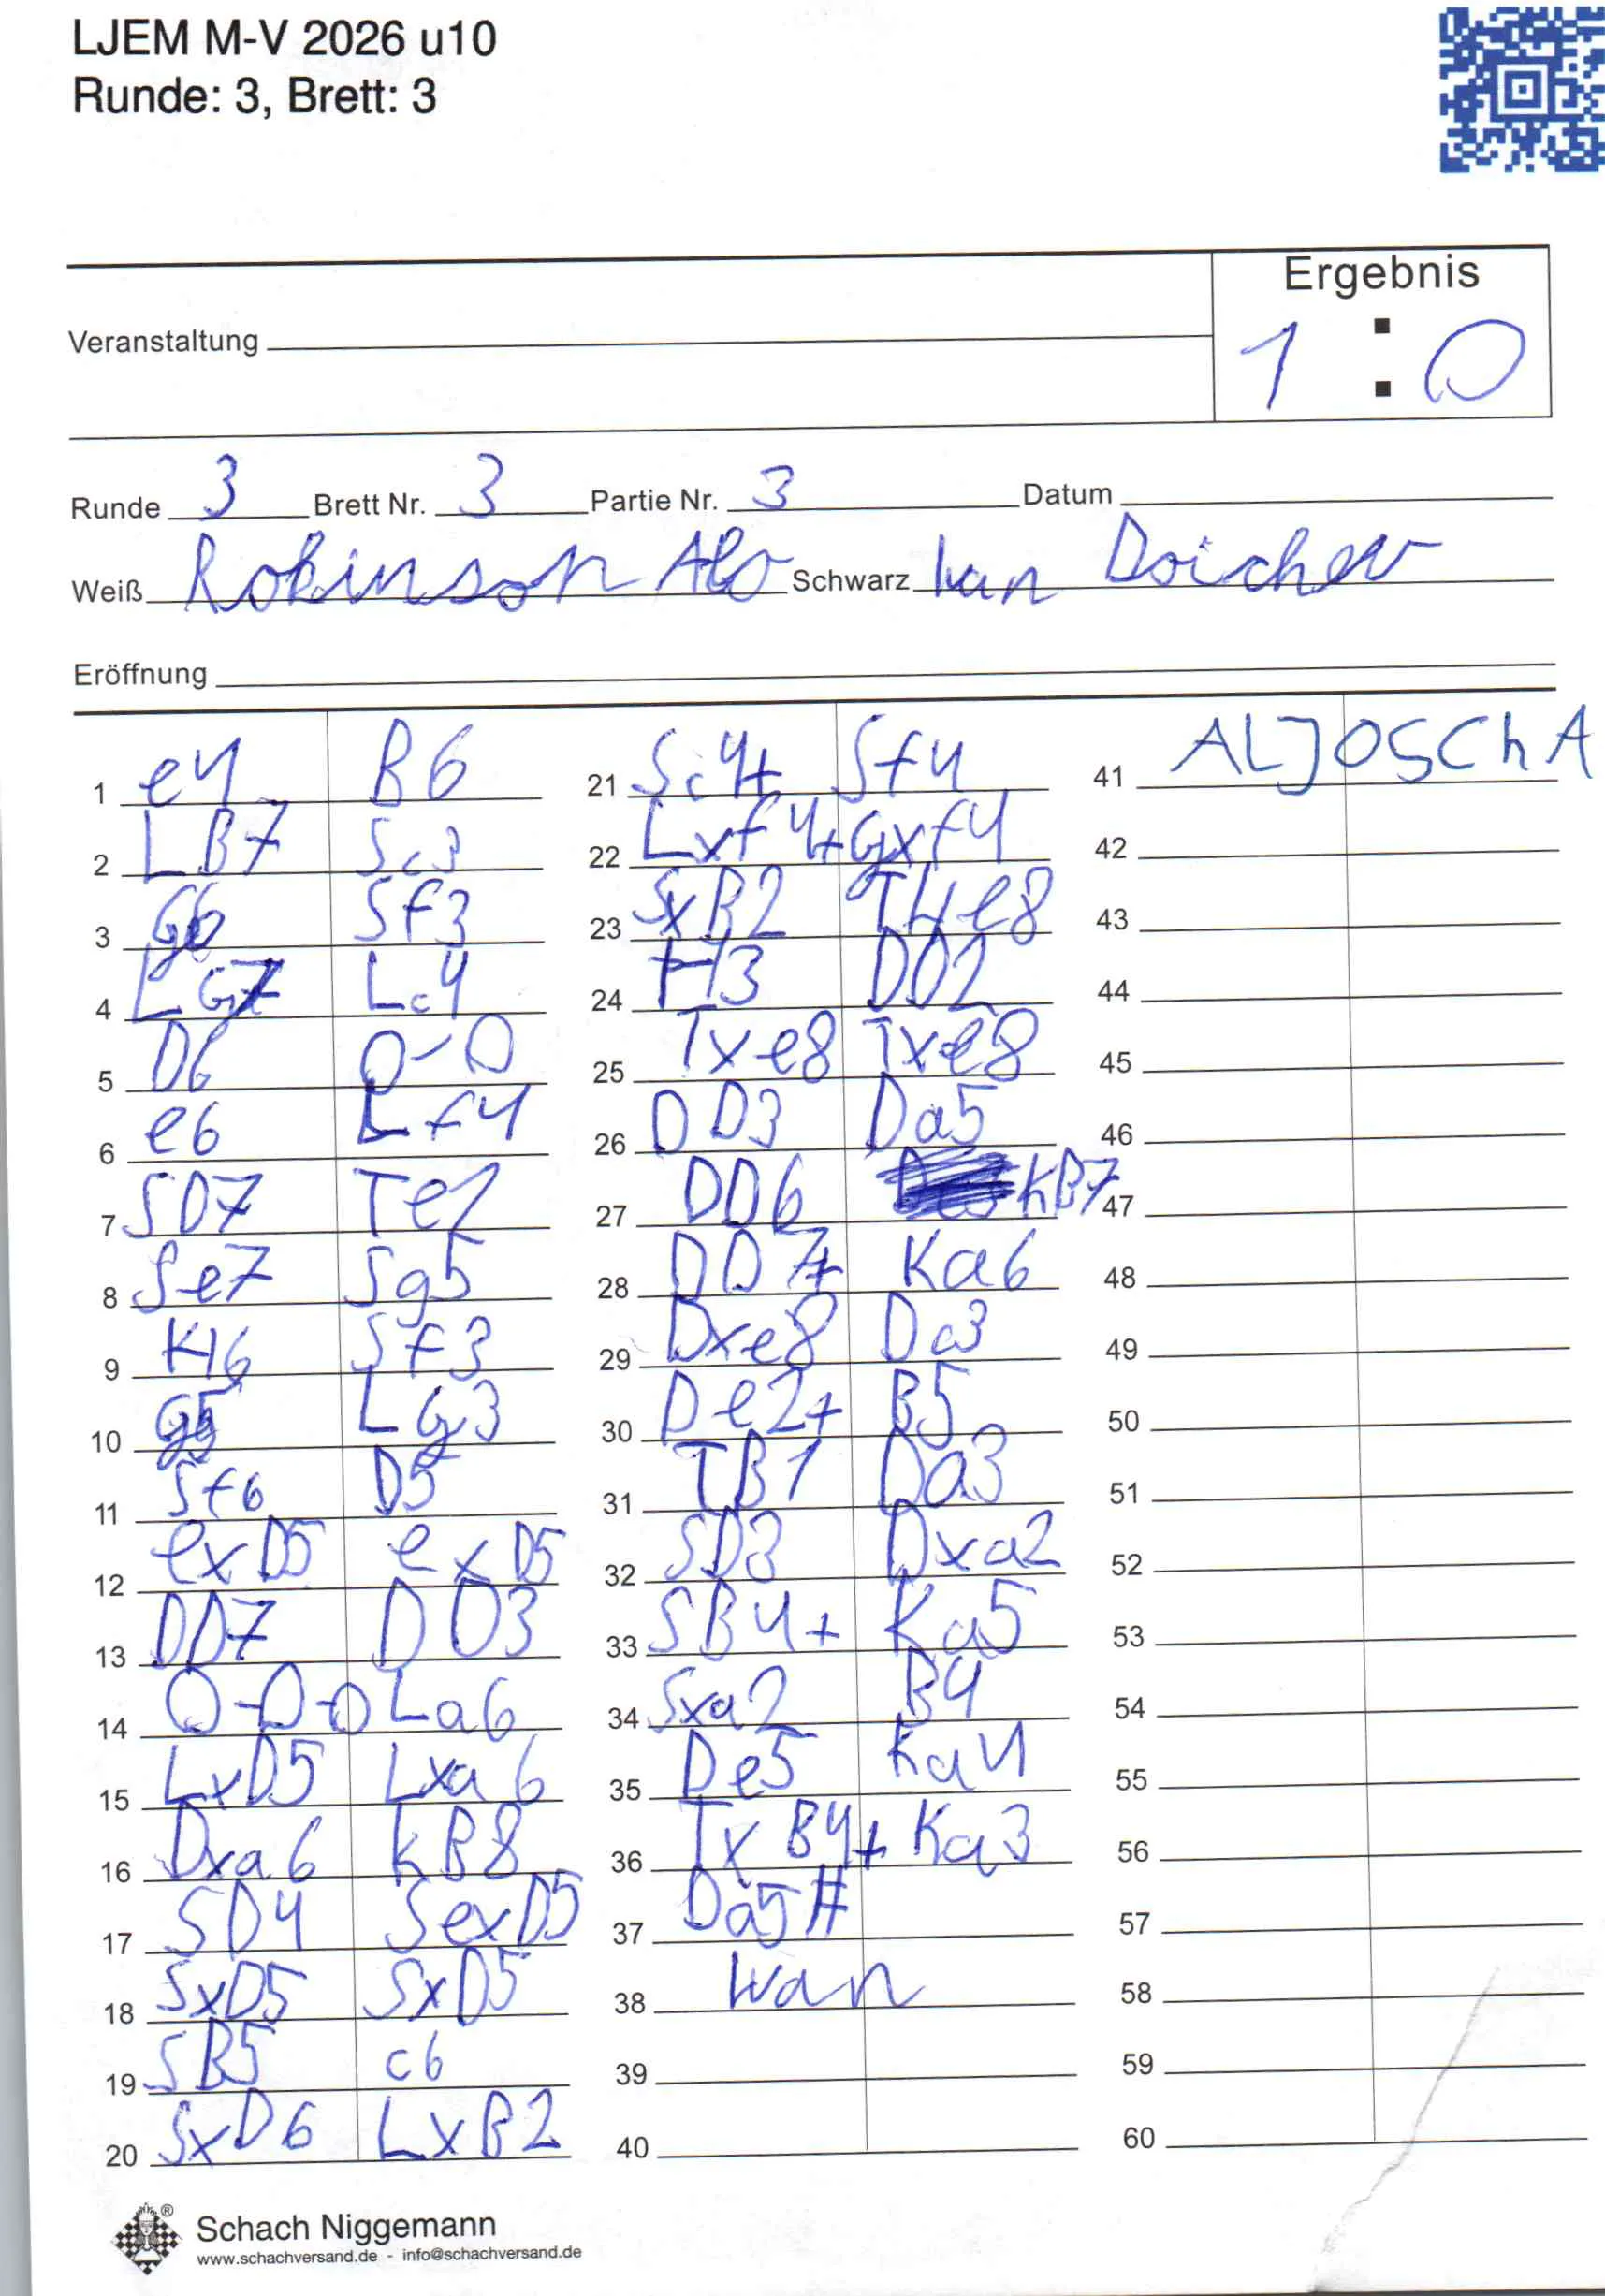 LJEM M-V 2026 u10
Runde: 3, Brett: 3
Ergebnis
Veranstaltung 1 : 0
Runde 3 Brett Nr. 3 Partie Nr. 3 Datum
Weiß Robinson Schwarz Doichev
Eröffnung
1 e4 B6 21 Sc4+ Sf4 41 ALJOSChA
2 LB7 Sc3 22 Lxf4+ Gxf4 42
3 G6 Sf3 23 SxB2 THe8 43
4 LG7 Lc4 24 H3 DD2 44
5 D6 0-0 25 Txe8 Txe8 45
6 e6 Lf4 26 DD3 Da5 46
7 SD7 Te1 27 DD6 KB7 47
8 Se7 Sg5 28 DD7+ Ka6 48
9 H6 Sf3 29 Dxe8 Dc3 49
10 g5 LG3 30 De2+ B5 50
11 Sf6 D5 31 TB1 Da3 51
12 exD5 exD5 32 SD3 Dxa2 52
13 DD7 DD3 33 SB4+ Ka5 53
14 0-0-0 La6 34 Sxa2 B4 54
15 LxD5 Lxa6 35 De5 Ka4 55
16 Dxa6 KB8 36 TxB4+ Ka3 56
17 SD4 SexD5 37 Da5# 57
18 SxD5 SxD5 38 Ivan 58
19 SB5 c6 39 59
20 SxD6 LxB2 40 60
Schach Niggemann
www.schachversand.de - info@schachversand.de